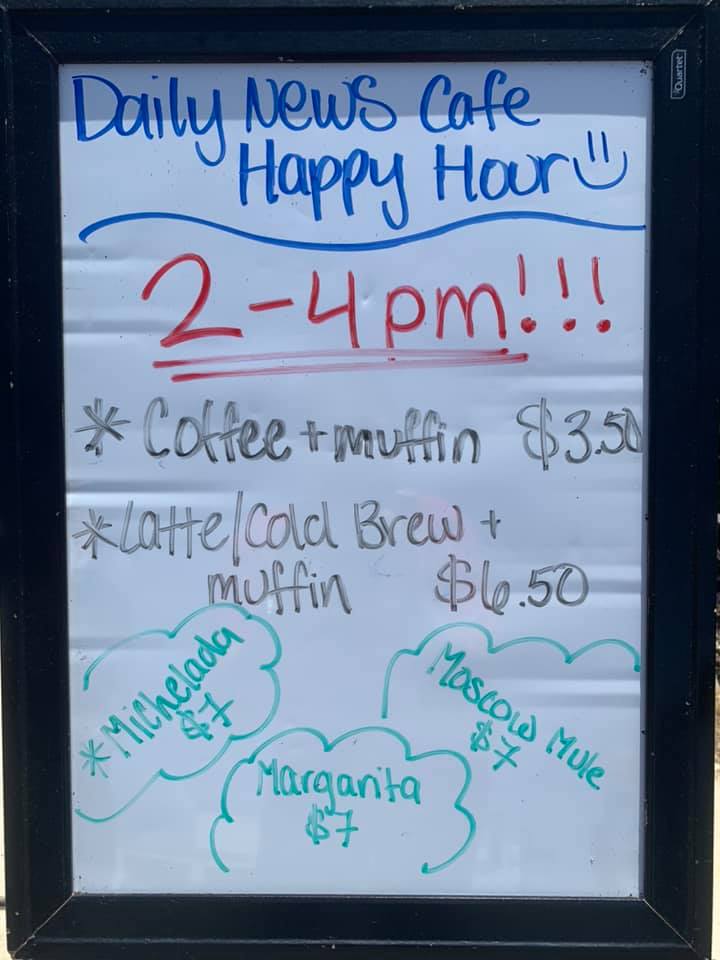 Quartet
Daily News Cafe
Happy Hour
2-4pm!!!
* Coffee + muffin $3.50
* Latte/Cold Brew +
muffin $6.50
* Michelada
$7
Moscow Mule
$7
Margarita
$7